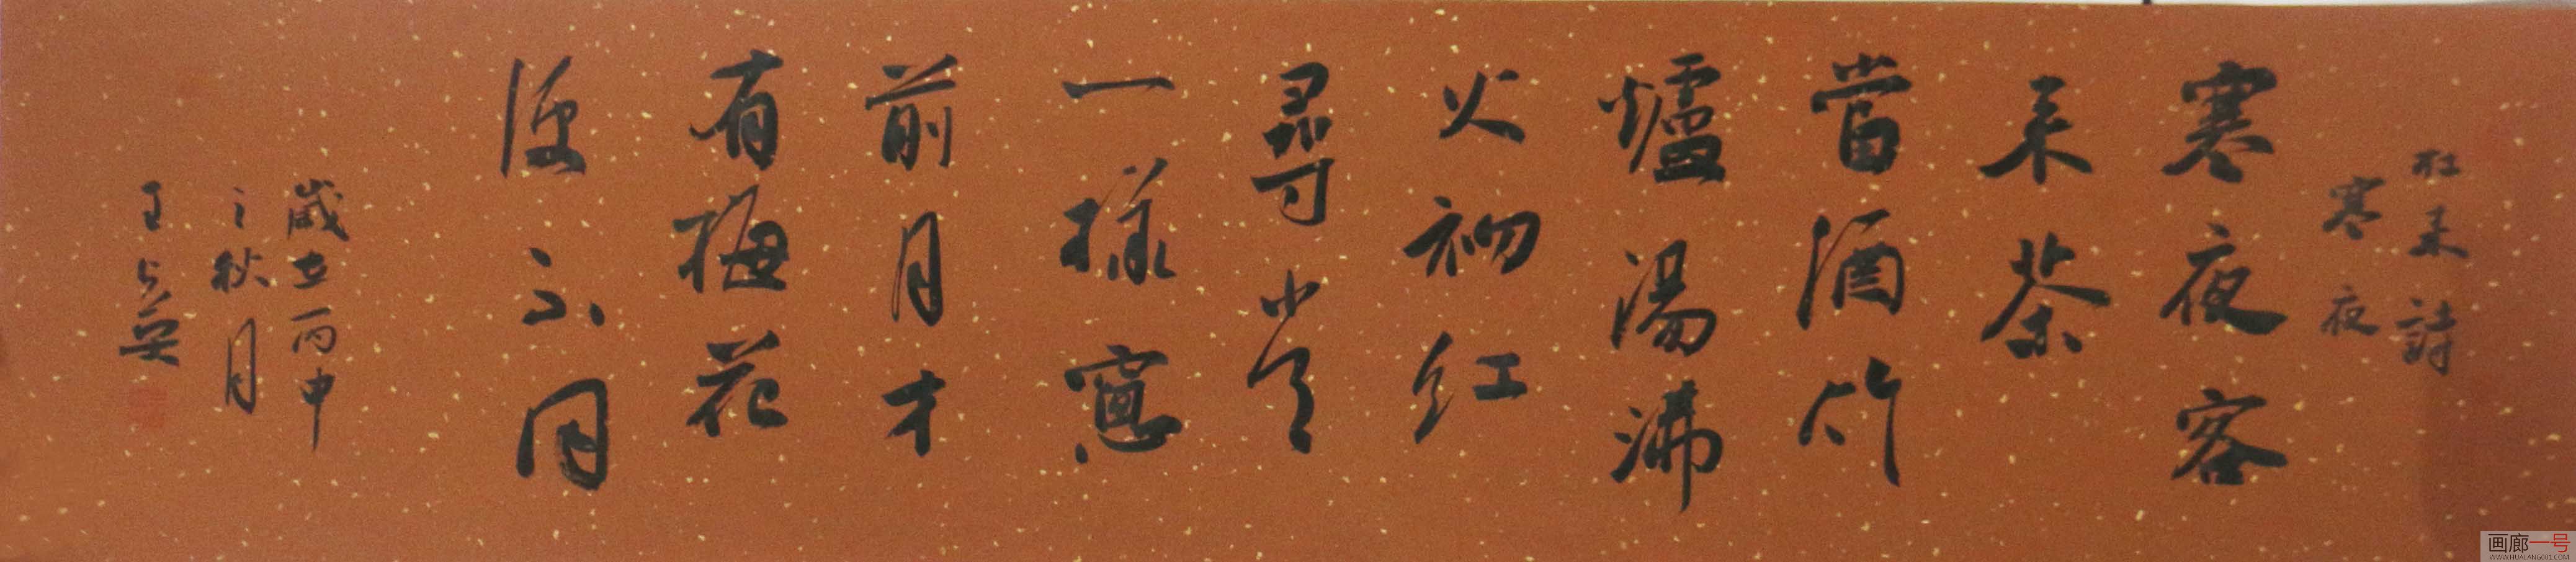 杜耒詩
寒夜
寒夜客
来茶
當酒竹
爐湯沸
火初红
尋常
一樣窻
前月才
有梅花
便不同
歲在丙申
之秋月
王
画廊一号
WWW.HUALANG001.COM